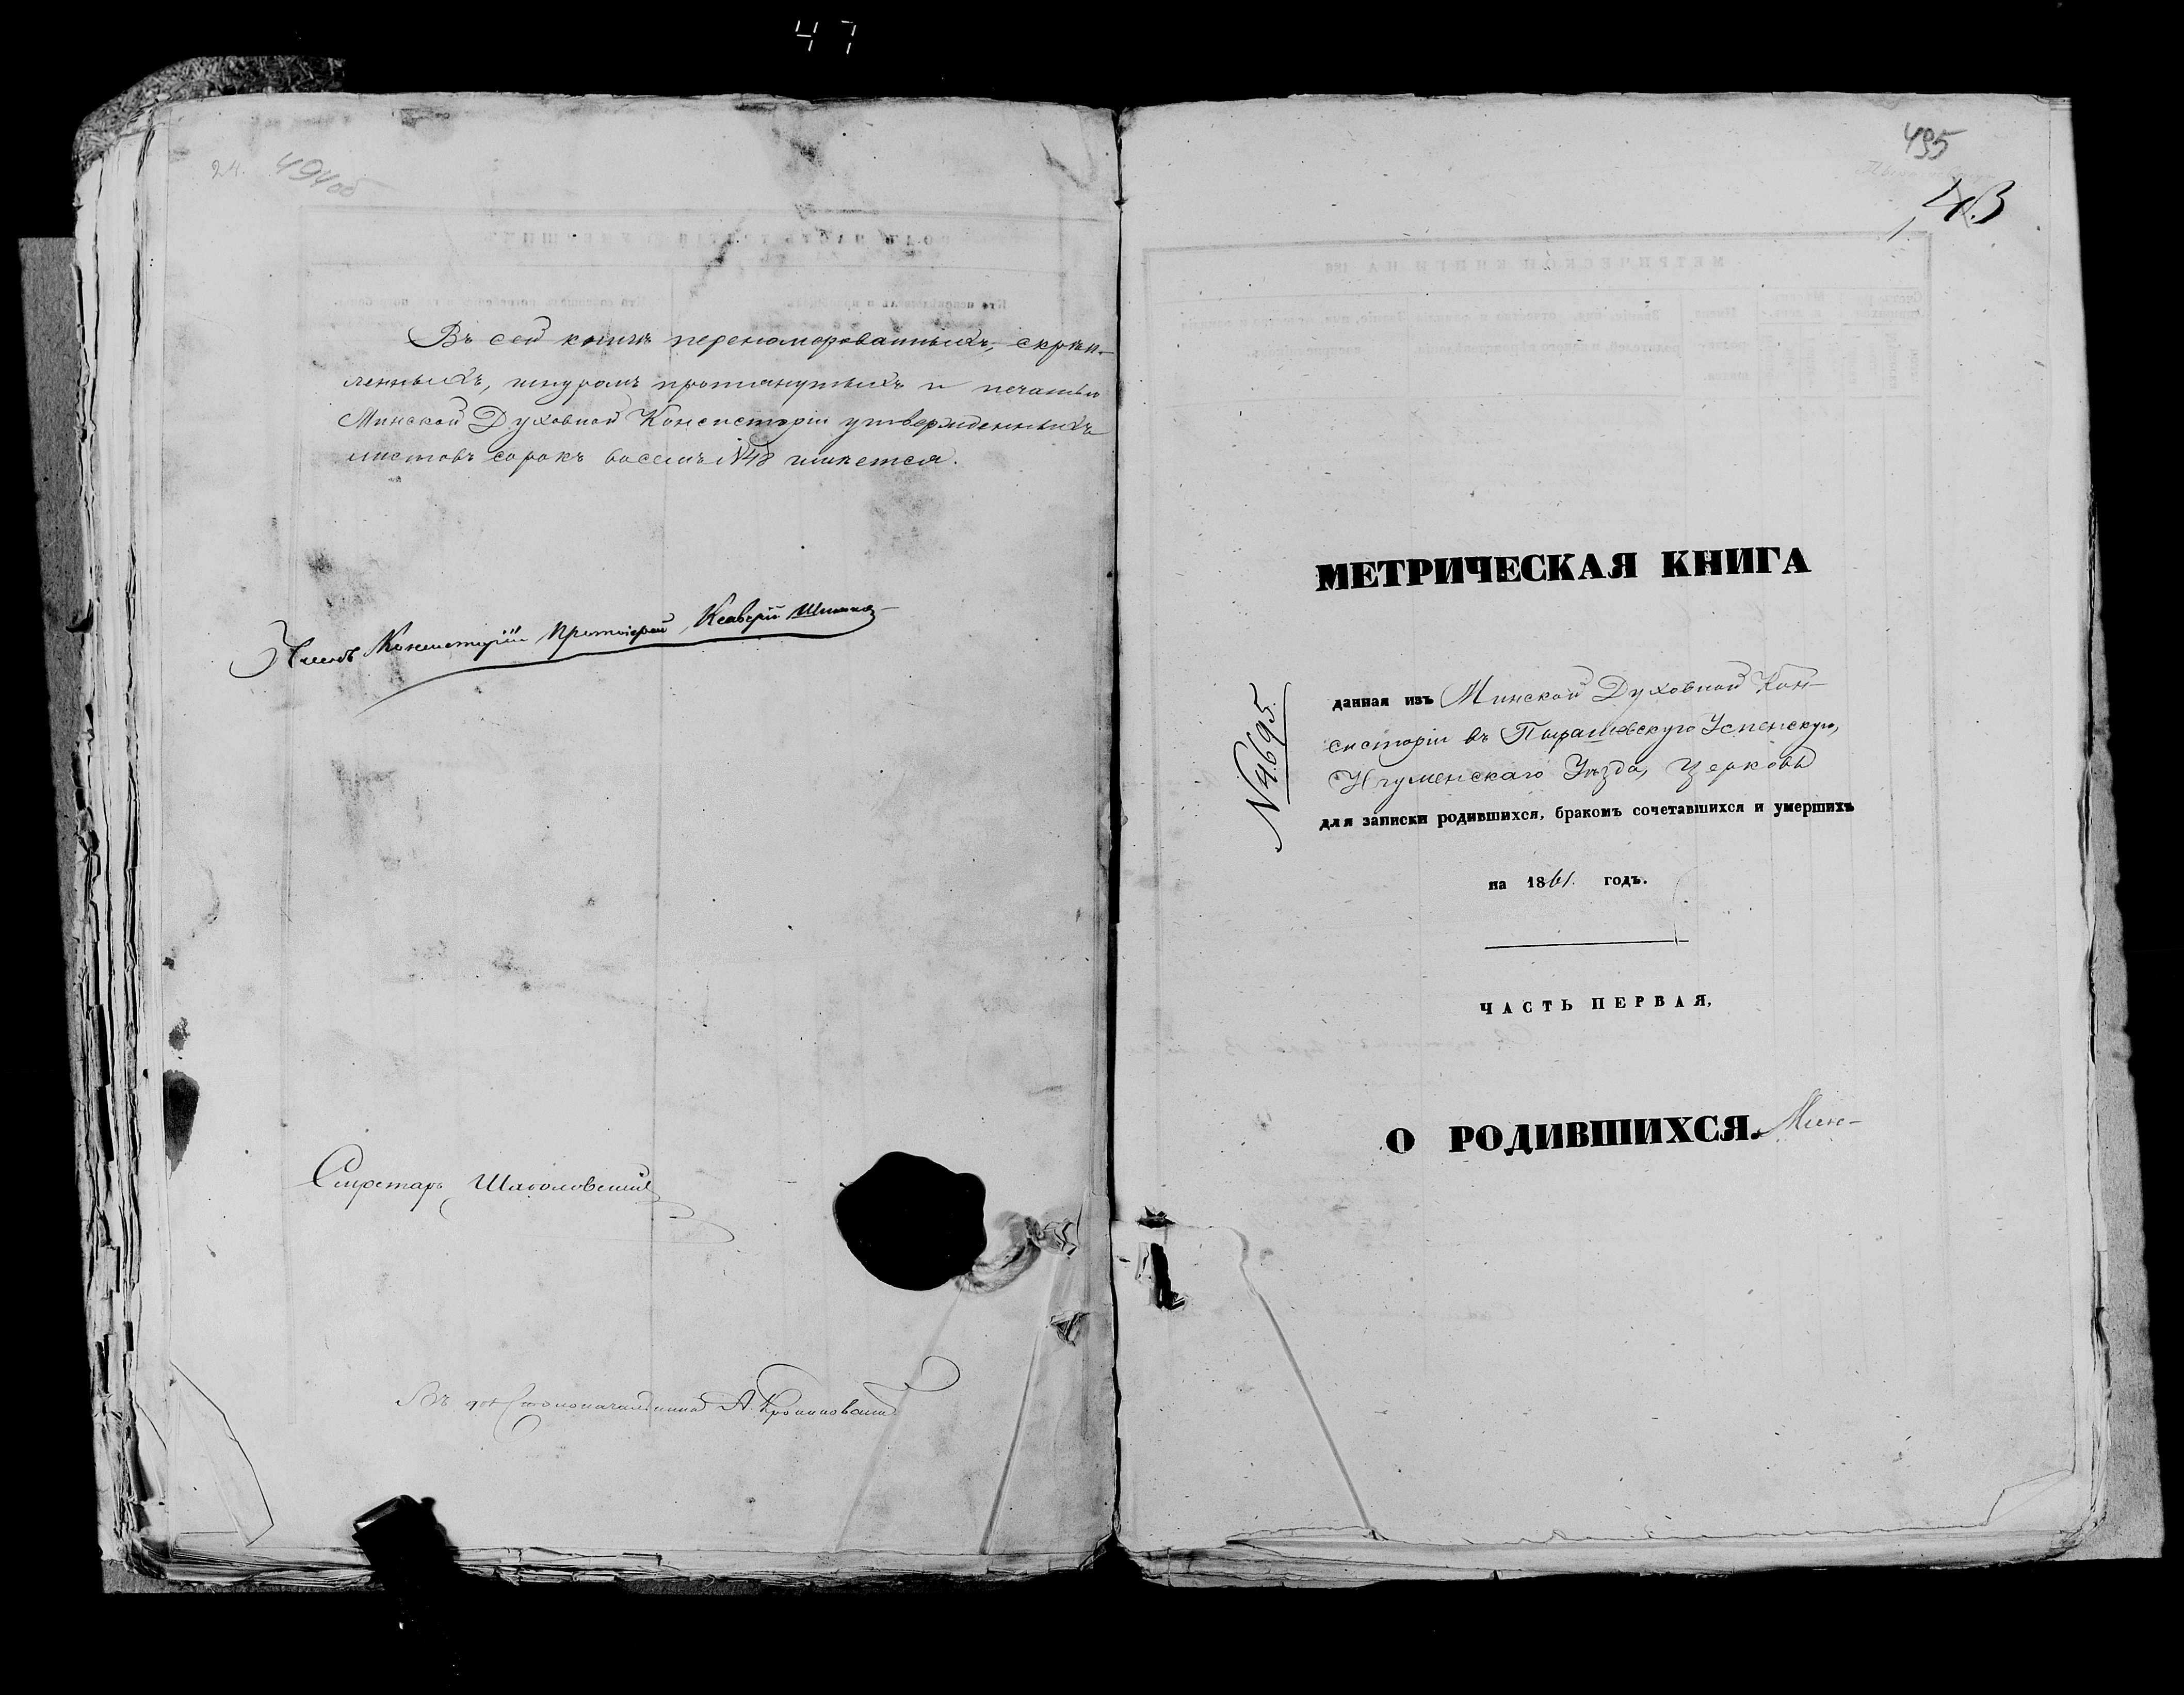 47
24. 494об
Въ сей книгѣ перенумерованныхъ, скрѣп-
ленныхъ, шнуромъ протянутыхъ и печатью
Минской Духовной Консисторіи утвержденныхъ
листовъ сорокъ восемь №48 имѣется.
Членъ Консисторіи Протоіерей Ксаверій
Секретарь
Въ Столоначальника А.
495
№4695.
МЕТРИЧЕСКАЯ КНИГА
данная изъ Минской Духовной Кон-
систоріи въ Пырашевскую Успенскую,
Игуменскаго Уѣзда, Церковь
для записки родившихся, бракомъ сочетавшихся и умершихъ
на 1861. годъ.
ЧАСТЬ ПЕРВАЯ,
О РОДИВШИХСЯ. Мин-